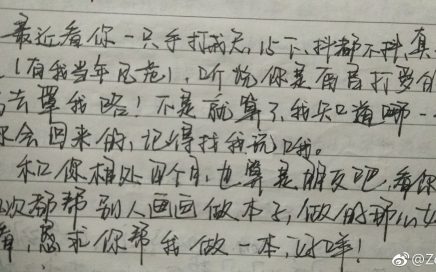 最近看你一只手打我兄,15下,抖都不抖,真
(有我当年风范),听说你是 打 的
去罩我略!不是就算了,我只 一
会回来的,记得找我说哦。
和你相处四个月,也算是朋友吧,看你
次都帮别人画画做本子,做的那么
着,恳求你帮我做一本,好咩!
@Z